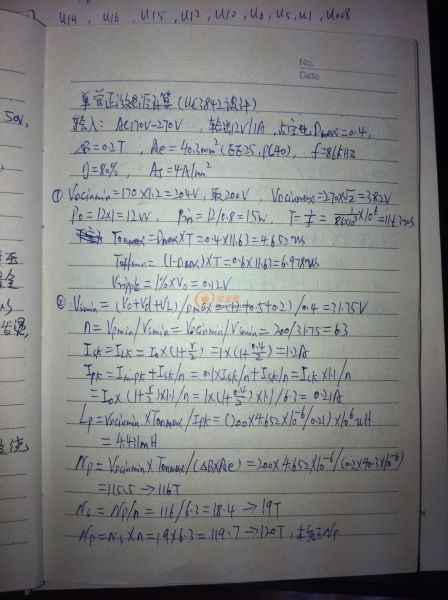 U19, U16, U15, U12, U10, U6, U5, U1, U008
No.
Date
单管正激电源计算(UC3842设计)
输入: AC170V-270V, 输出12V/1A, 占空比Dmax=0.4,
ΔB=0.2T, Ae=40.3mm²(EE25, PC40), f=86kHz
η=80%, AJ=4A/mm²
① VDCinmin=170×1.2=204V, 取200V VDCinmax=270×√2=382V
Po=12×1=12W Pin=12/0.8=15W T=1/f=1/(86×10³)×10⁶=11.63us
Tonmax=Dmax×T=0.4×11.63=4.652us
Toffmin=(1-Dmax)×T=0.6×11.63=6.978us
Vripple=1%×Vo=0.12V
② Vsmin=(Vo+Vd+VL)/Dmax=(12+0.5+0.2)/0.4=31.75V
n=Vpmin/Vsmin=VDCinmin/Vsmin=200/31.75=6.3
Isk=ILk=Io×(1+r/2)=1×(1+0.4/2)=1.2A
Ipk=Impk+Isk/n=0.1×Isk/n+Isk/n=ILk×1.1/n
=Io×(1+r/2)×1.1/n=1×(1+0.4/2)×1.1/6.3=0.21A
Lp=VDCinmin×Tonmax/Ipk=(200×4.652×10⁻⁶/0.21)×10⁶uH
=4.431mH
Np=VDCinmin×Tonmax/(ΔB×Ae)=200×4.652×10⁻⁶/(0.2×40.3×10⁻⁶)
=115.5→116T
Ns=Np/n=116/6.3=18.4→19T
Np=Ns×n=19×6.3=119.7→120T, Np
50V,